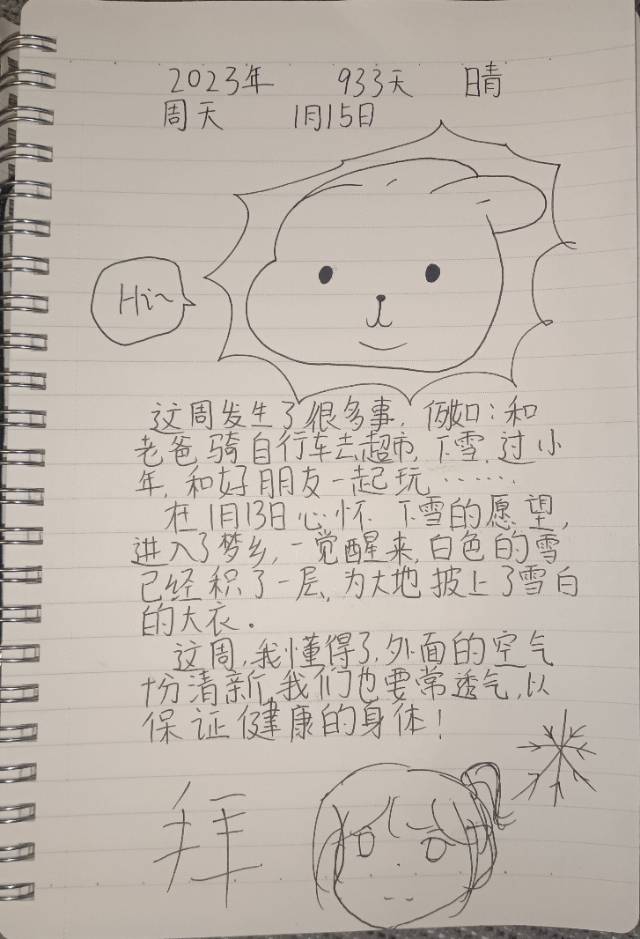 2023年 933天 晴
周天 1月15日
Hi~
这周发生了很多事，例如：和
老爸骑自行车去超市，下雪，过小
年，和好朋友一起玩……
在1月13日心怀下雪的愿望，
进入了梦乡，一觉醒来，白色的雪
已经积了一层，为大地披上了雪白
的大衣。
这周，我懂得了，外面的空气
份清新，我们也要常透气，以
保证健康的身体！
拜